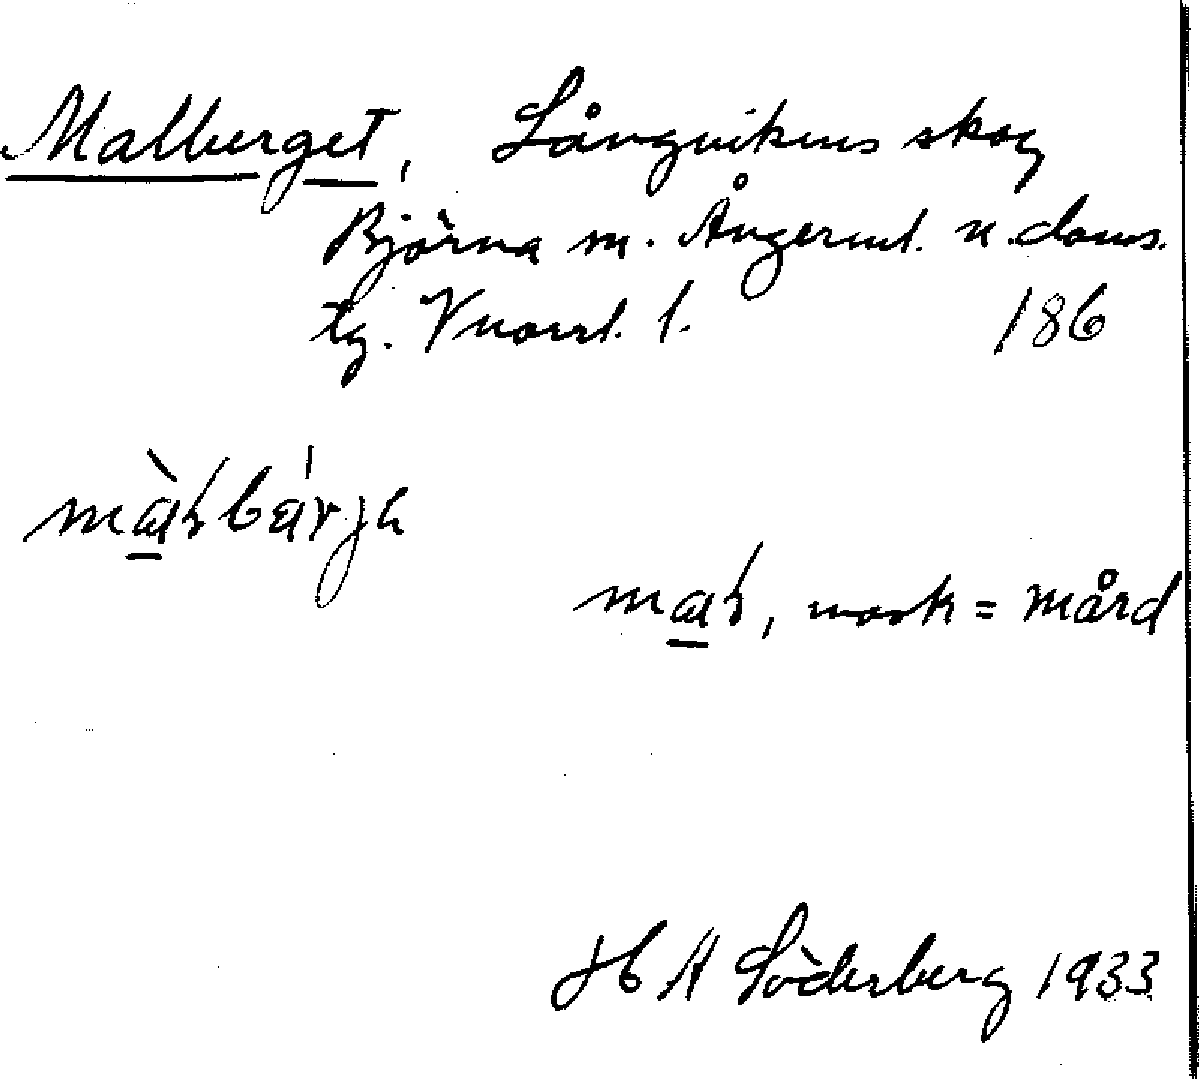 Malberget, Långvikens skog
Björna sn. Ångerml. n. doms.
tg. Vnorrl. l. 186
mask = mård
H A Söderberg 1933